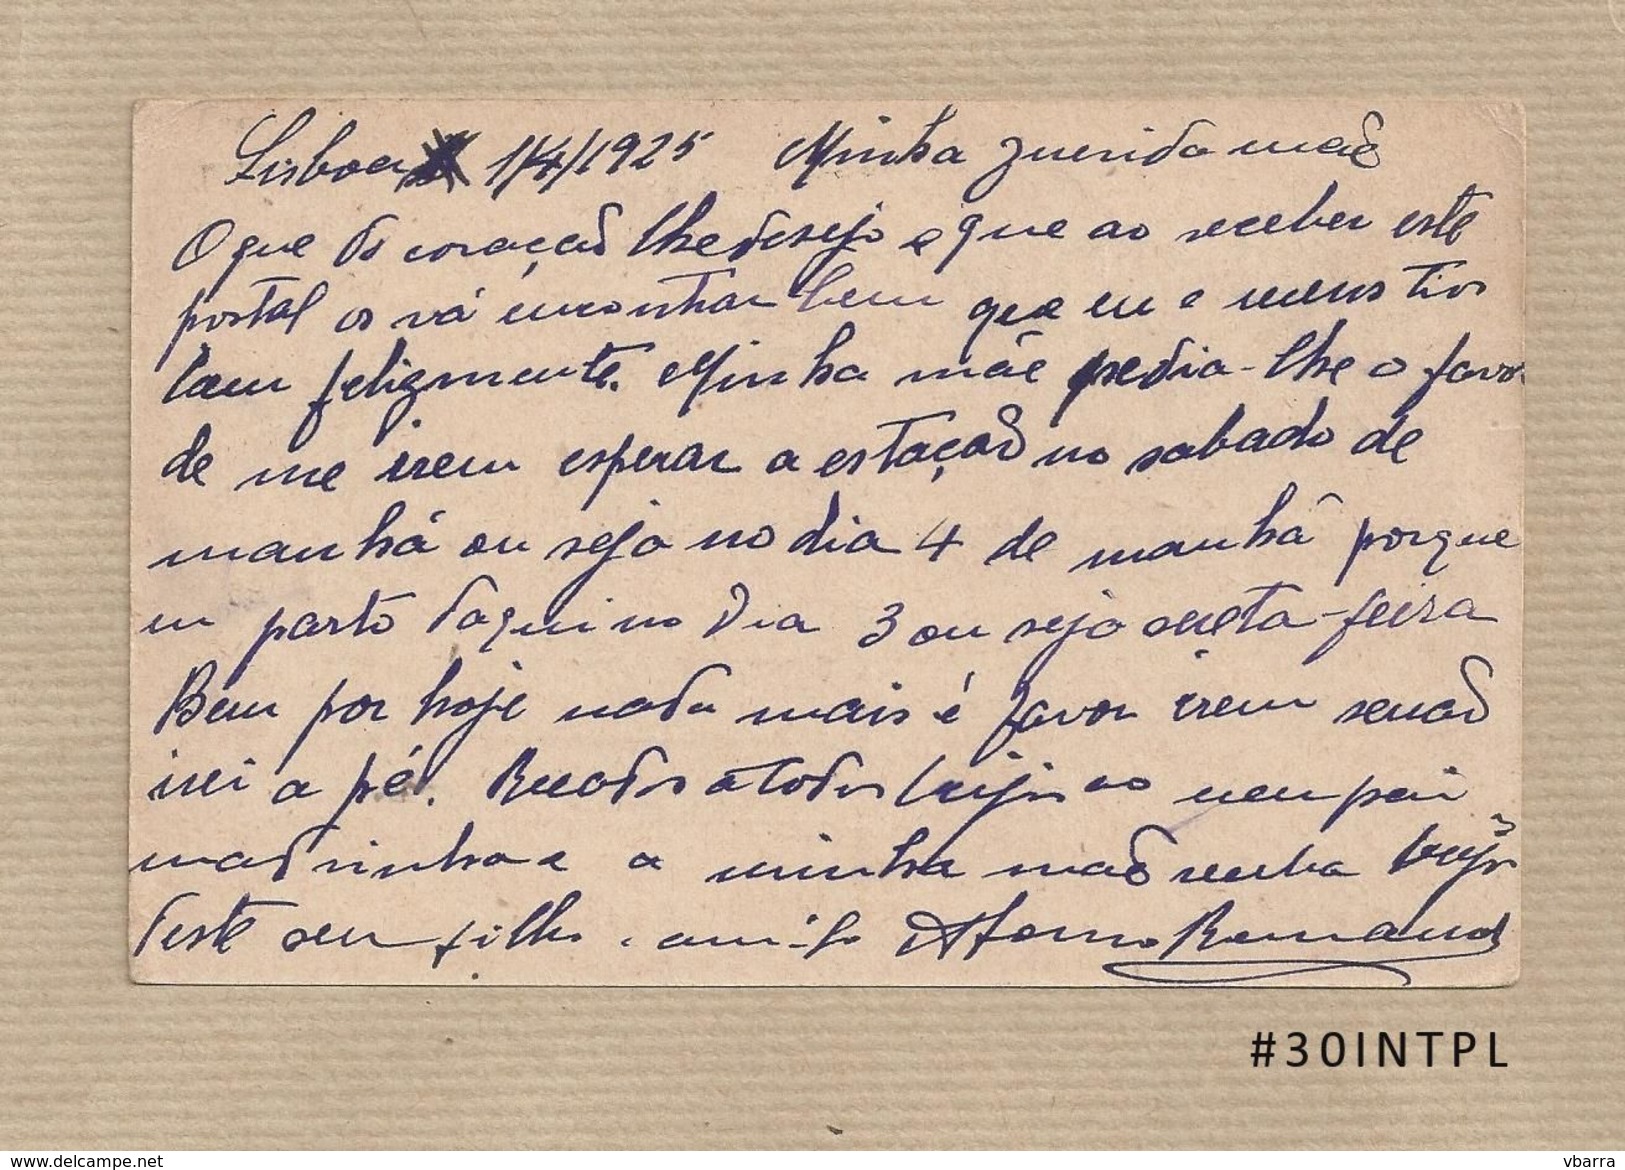 Lisboa 1/4/1925 Minha querida mãe
O que do coração lhe desejo e que ao receber este
postal os vá encontrar bem que eu e meus tios
bam felizmente. Minha mãe pedia-lhe o favor
de me irem esperar a estação no sabado de
manhá ou seja no dia 4 de manhâ porque
eu parto daqui no dia 3 ou seja sexta-feira
Bem por hoje nada mais é favor irem senão
irei a pé. Recados a todos beijos ao meu pai
madrinha e a minha mãe receba beijos
deste seu filho amigo Afonso Bernardo
#30INTPL
www.delcampe.net
vbarra